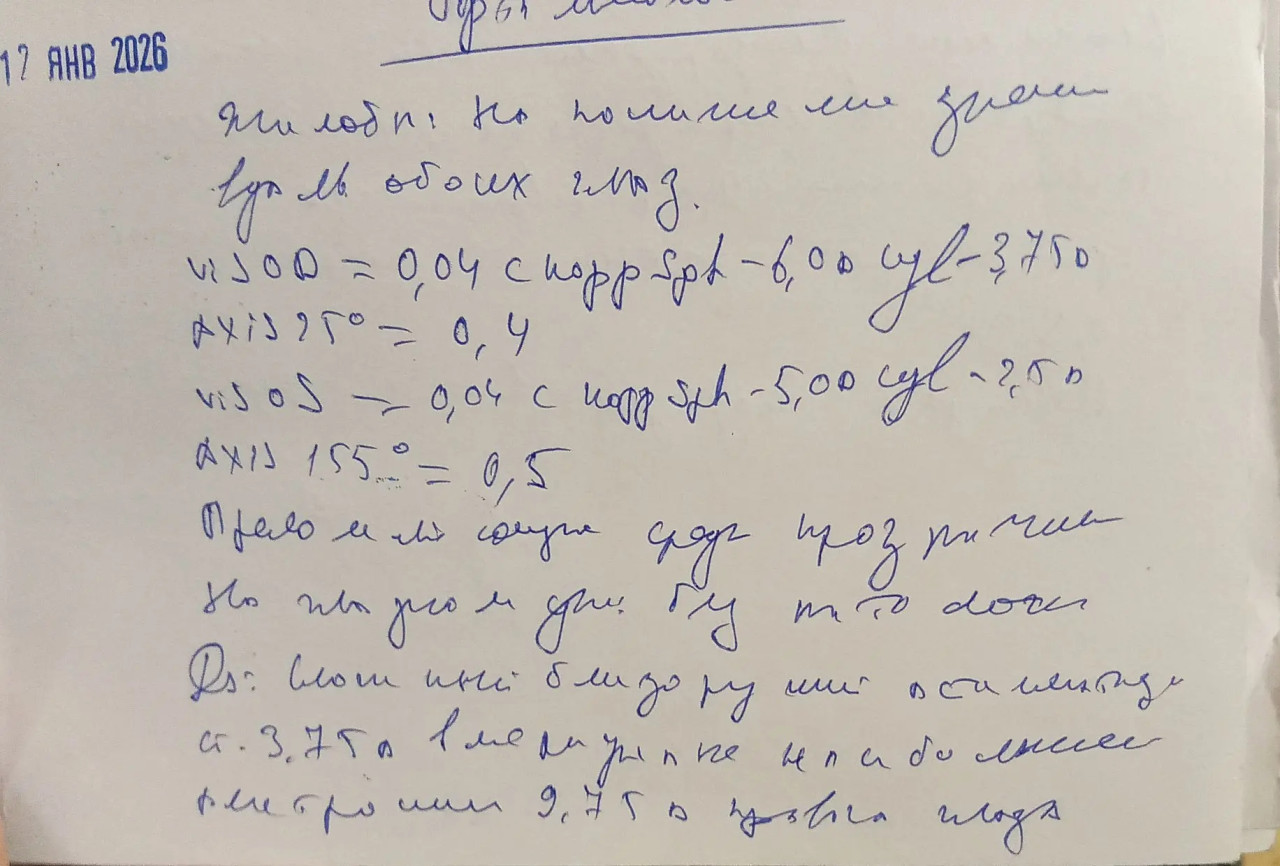 Врач
17 ЯНВ 2026
Жалобы: на понижение зрени
вдаль обоих глаз.
vis OD = 0,04 с корр sph -6,0 D cyl -3,75 D
axis 25° = 0,4
vis OS = 0,04 с корр sph -5,0 D cyl -2,5 D
axis 155° = 0,5
Преломляющие среды прозрачны
На глазном дне: без патологи
Ds: Сложный близорукий астигматизм
ст. 3,75 D в меридиане наибольшей
аметропии 9,75 D правого глаза